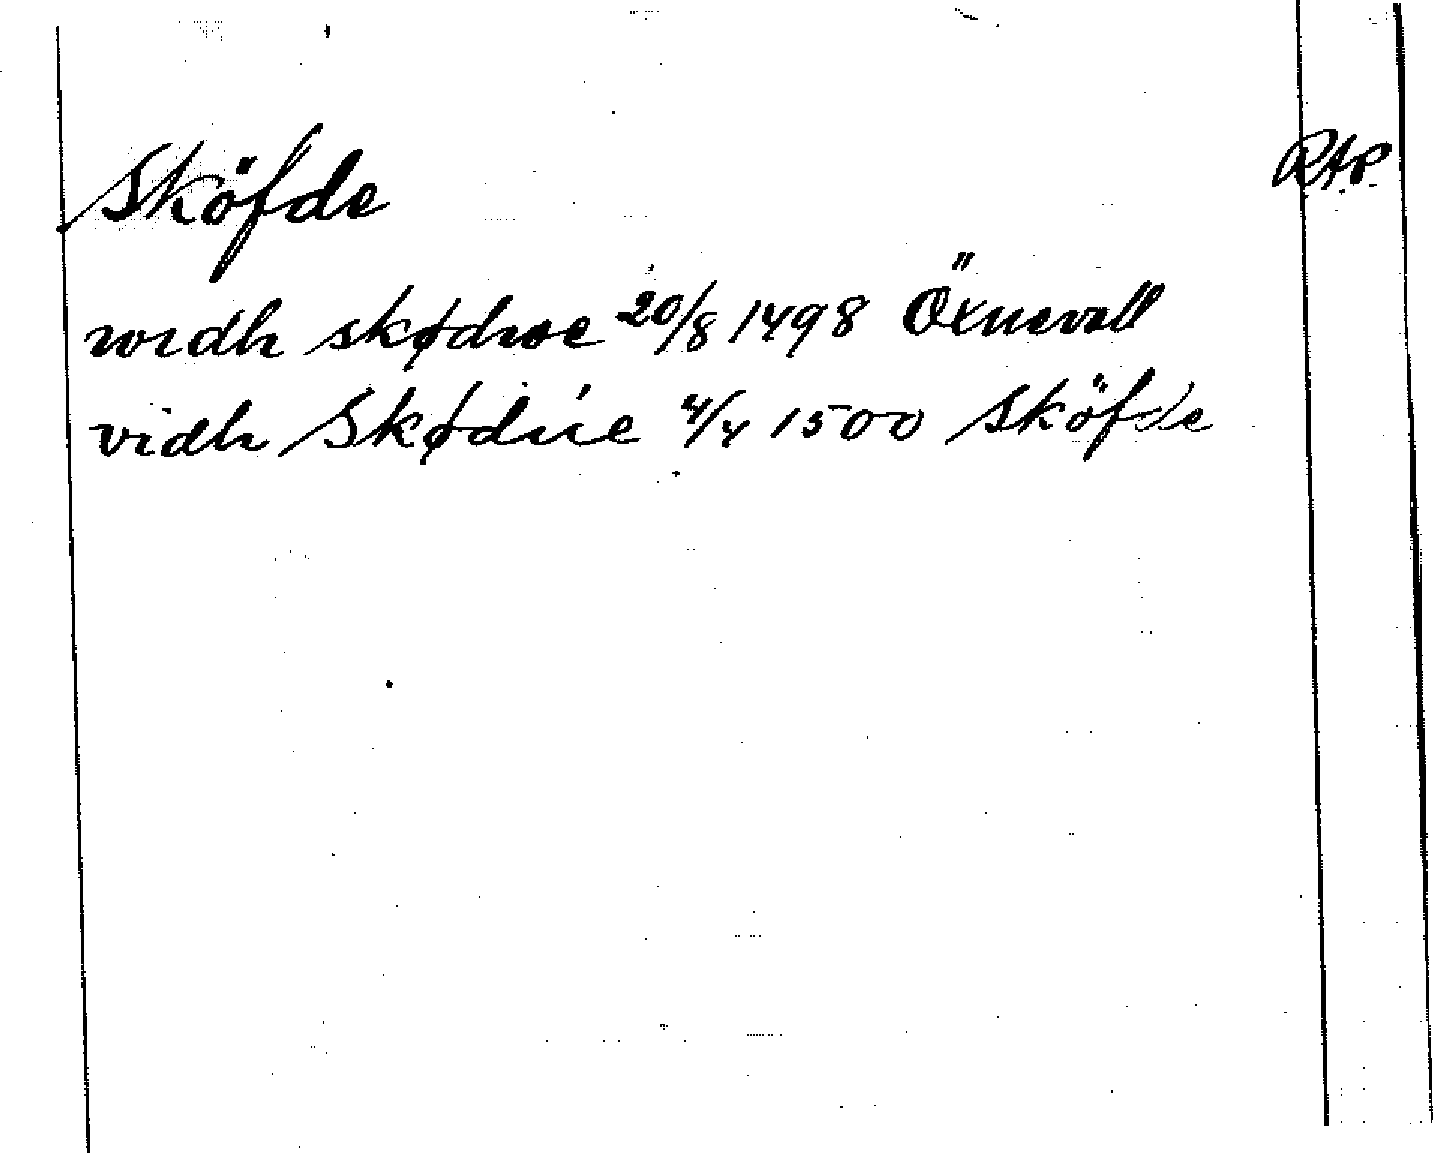 Sköfde
RAP.
widh skødwe 20/8 1498 Öxnevall
vidh Skødúe 4/4 1500 Sköfde